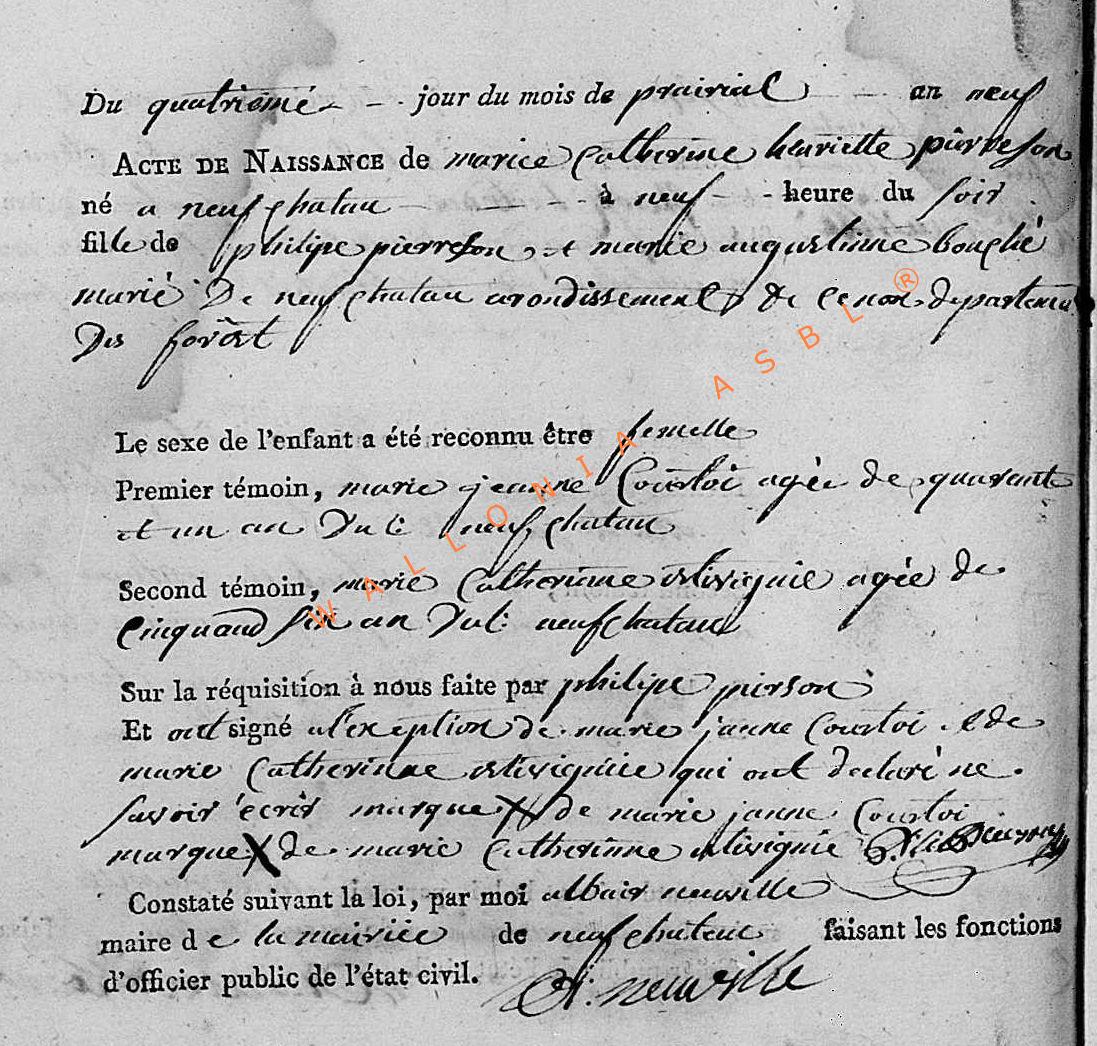 Du quatriemé jour du mois de prairial an neuf
ACTE DE NAISSANCE de mariee Catherine henriette pierreson
né a neufchatau à neuf heure du soir
fille de philipe pierreson et marie augustinne bouché
marié De neufchatau arondissement de departem
Des forêt
Le sexe de l'enfant a été reconnu être femelle
Premier témoin, marie jeanne Courtoi agée de quarante
et un an Du li neufchatau
Second témoin, marie Catherinne agée de
Cinquand six an Du li neufchatau
Sur la réquisition à nous faite par philipe pierson
Et ont signé a l'exeption de marie jeanne Courtoi & de
marie Catherinne qui ont declaré ne
savoir écrir marque X de marie janne Courtoi
marque X de marie Catherinne
Constaté suivant la loi, par moi albair neuville
maire de la mairiee de neufchateau faisant les fonctions
d'officier public de l'état civil. A. neuville
WALLONIA ASBL ®